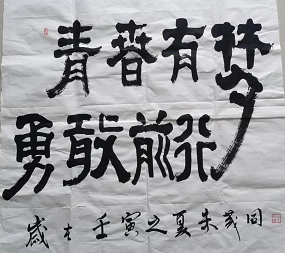 青春有梦
勇敢前行
歲在壬寅之夏朱茂同